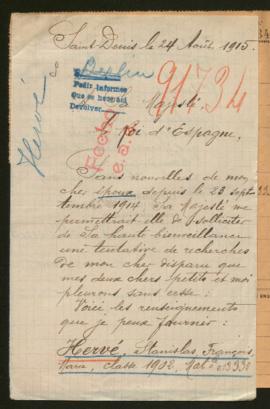 Saint Denis le 24 Août 1915.
Berlin
Pedir informes
que se buscará
Devolver
91734
Hervé
Majesté
Roi d'Espagne,
Sans nouvelles de mon
cher époux depuis le 23 sept-
tembre 1914 Sa Majesté me
permettrait elle de solliciter
de Sa haute bienveillance
une tentative de recherches
de mon cher disparu que
mes deux chers petits et moi
pleurons sans cesse :
Voici les renseignements
que je peux fournir :
Hervé, Stanislas, François,
Marie, classe 1902. Mat.